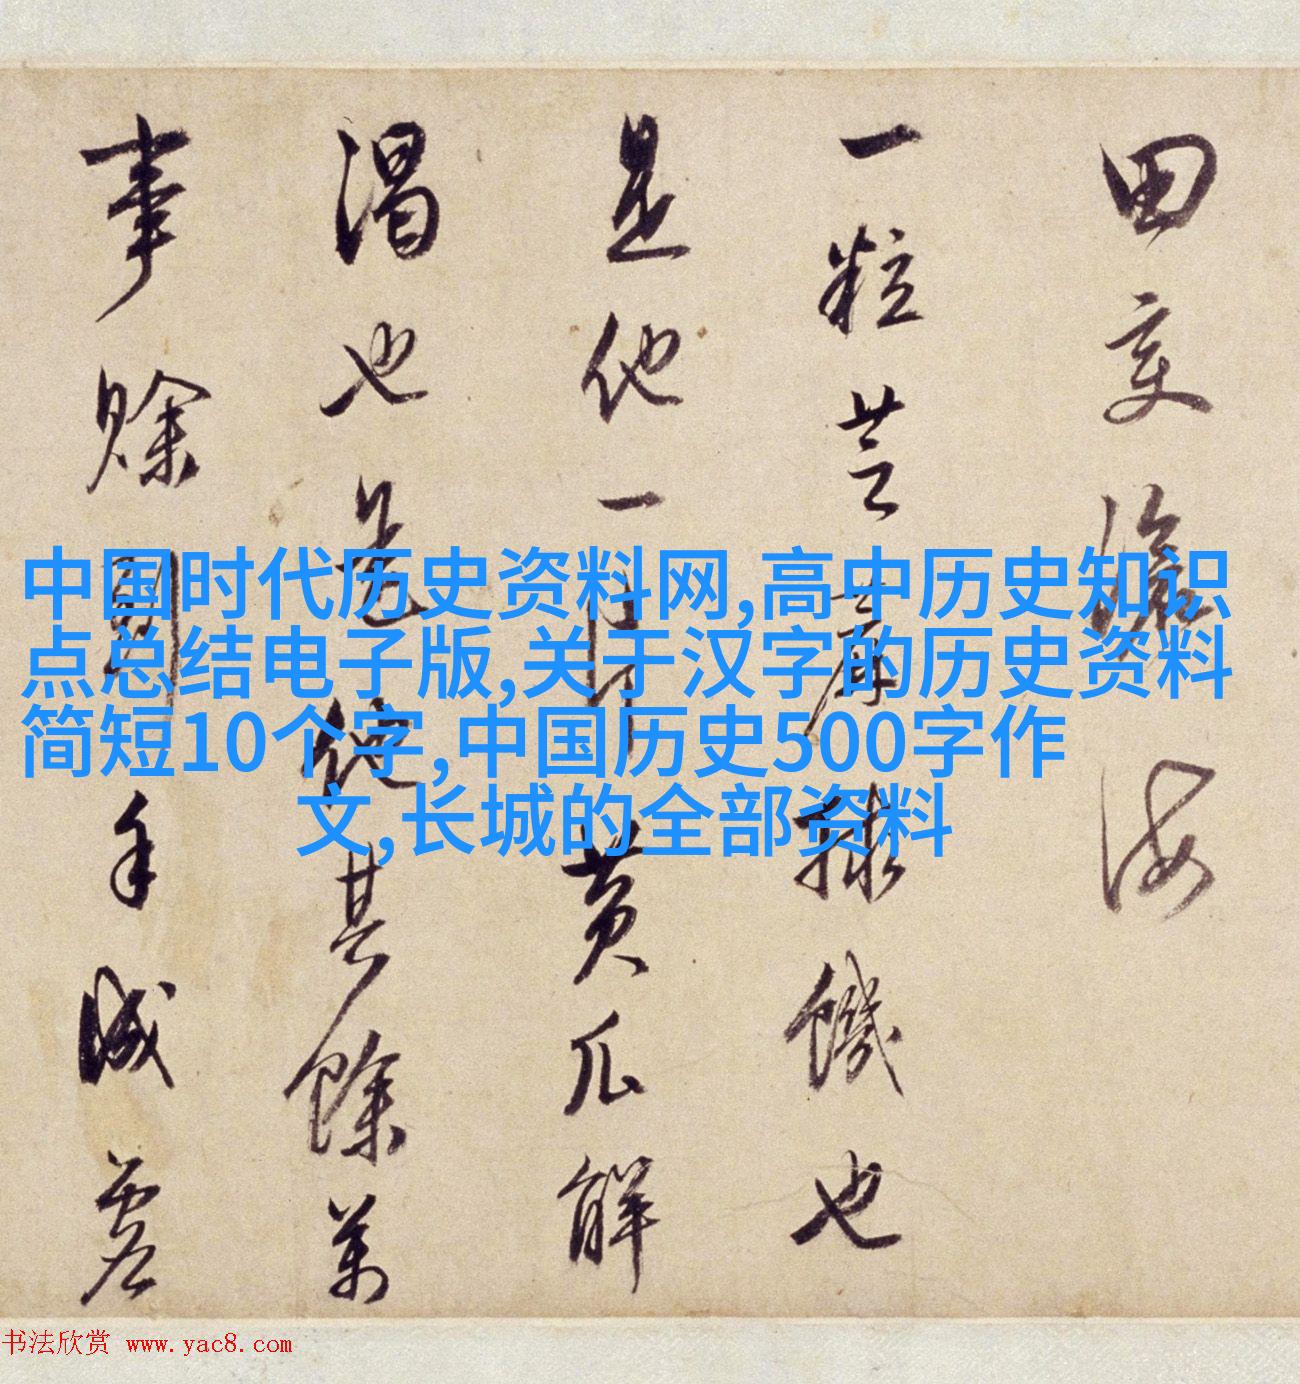 田变滄海
一粒芝麻捄饑也
是他一黄瓜解
渴也是他其餘萬
事賒手
中国时代历史资料网,高中历史知识
点总结电子版,关于汉字的历史资料
简短10个字,中国历史500字作
文,长城的全部资料
书法欣赏 www.yac8.com